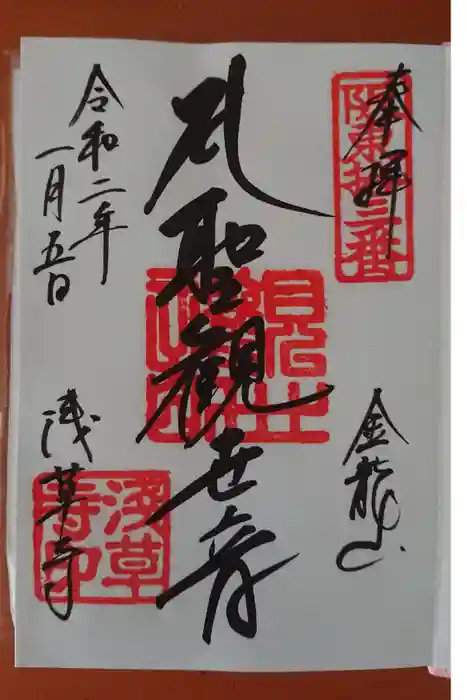 奉拝
阪東拾三番
金龍山
聖観世音
令和二年
一月五日
浅草寺
淺草寺印